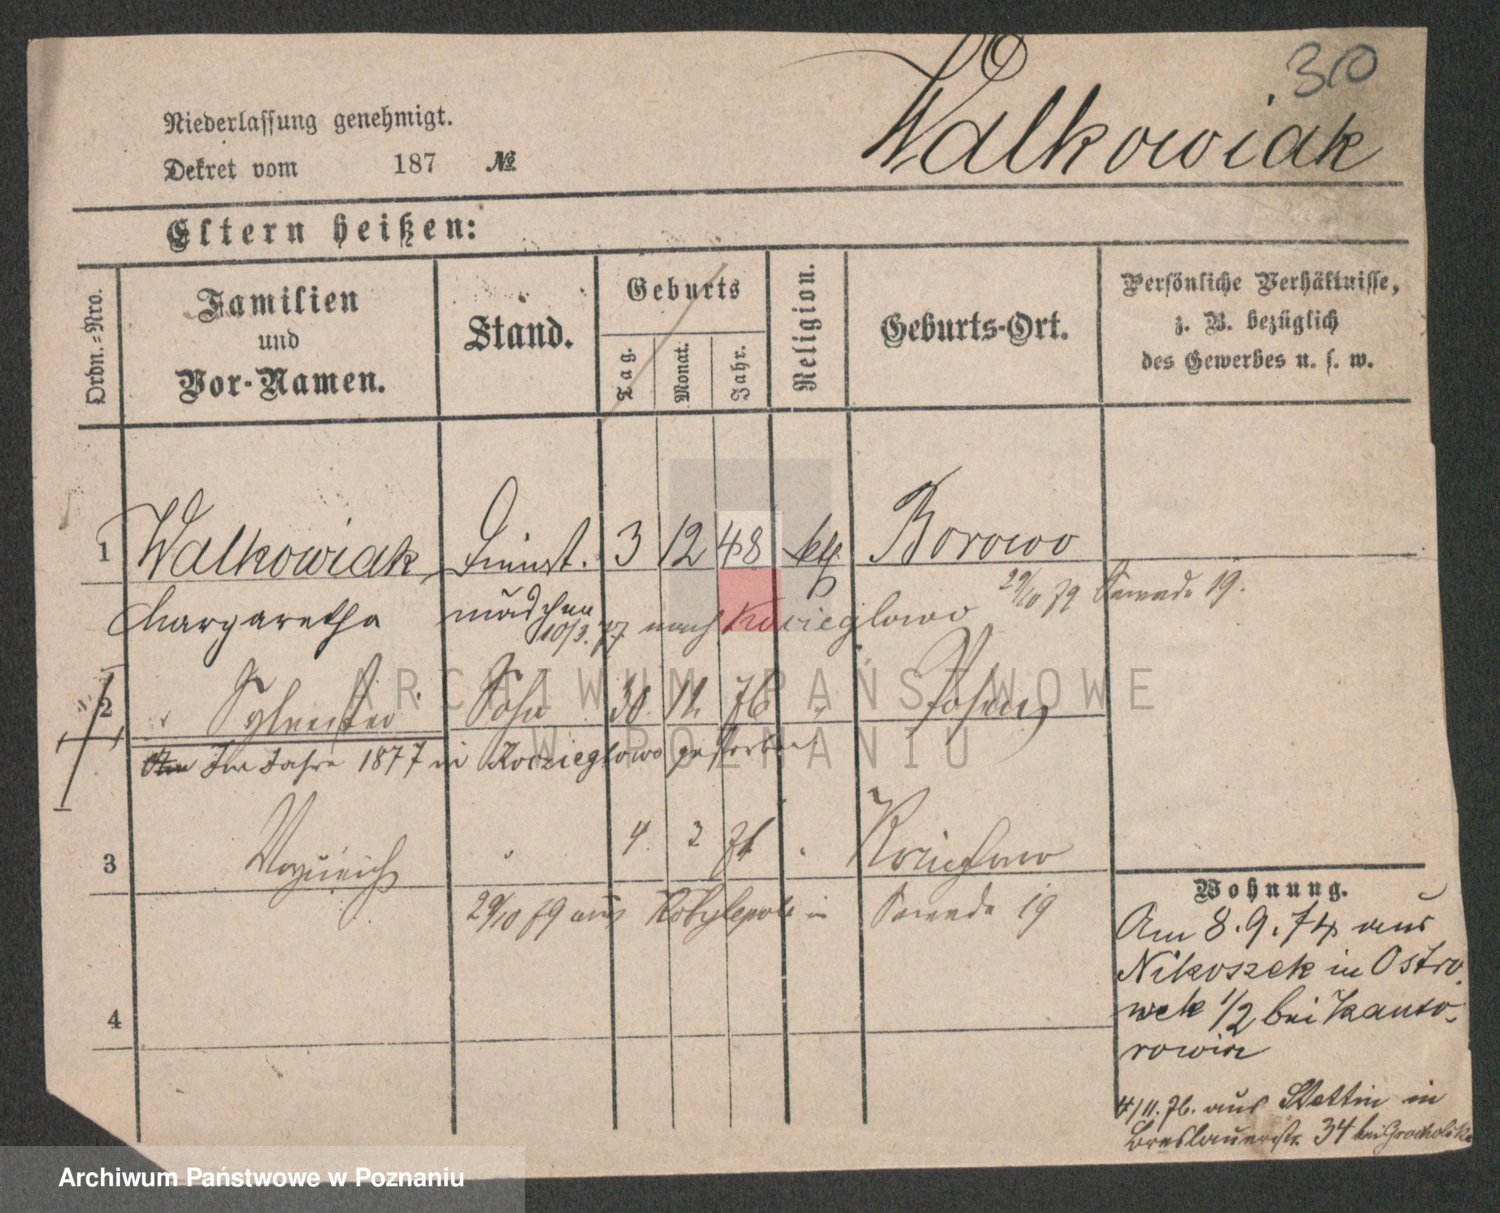 30
Walkowiak
Niederlassung genehmigt.
Dekret vom 187 №
Eltern heißen:
Ordn.-Nro.
Familien und Vor-Namen.
Stand.
Geburts
Tag. Monat. Jahr.
Religion.
Geburts-Ort.
Persönliche Verhältnisse,
z. B. bezüglich
des Gewerbes u. s. w.
1 Walkowiak, Dienst. 3 12 48 kth Borowo
Margaretha mädchen 29/10 79 Sawade 19.
10/3. 77 nach Kocieglowo
2 Sylvester Sohn 30. 11. 76 " Posen
Im Jahre 1877 in Kozieglowo gestorben
3 " 4. 2 "
29/10 79 aus Kobylepole in Sawade 19
4
Wohnung.
Am 8.9.74 aus
Nikoszek in Ostro-
wek 1/2 bei Kanto-
rowicz
4/11.76. aus Stettin in
Breslauerstr. 34 bei
ARCHIWUM PAŃSTWOWE
W POZNANIU
Archiwum Państwowe w Poznaniu